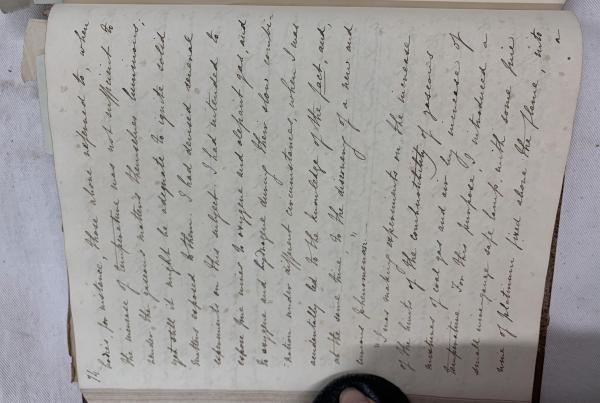 76.
bodies for instance, those above referred to, when
the increase of temperature was not sufficient to
render the gaseous matters themselves luminous;
yet still it might be adequate to ignite solid
matters exposed to them. I had devised several
experiments on this subject. I had intended to
expose fine wires to oxygene and olefiant gas and
to oxygene and hydrogene during their slow combi-
nation under different circumstances, when I was
accidentally led to the knowledge of the fact, and,
at the same time, to the discovery of a new and
curious phenomenon.—"
"I was making experiments on the increase
of the limits of the combustibility of gaseous
mixtures of coal gas and air by increase of
temperature. For this purpose, I introduced a
small wire-gauze safe lamp with some fine
wire of platinum fixed above the flame, into
a